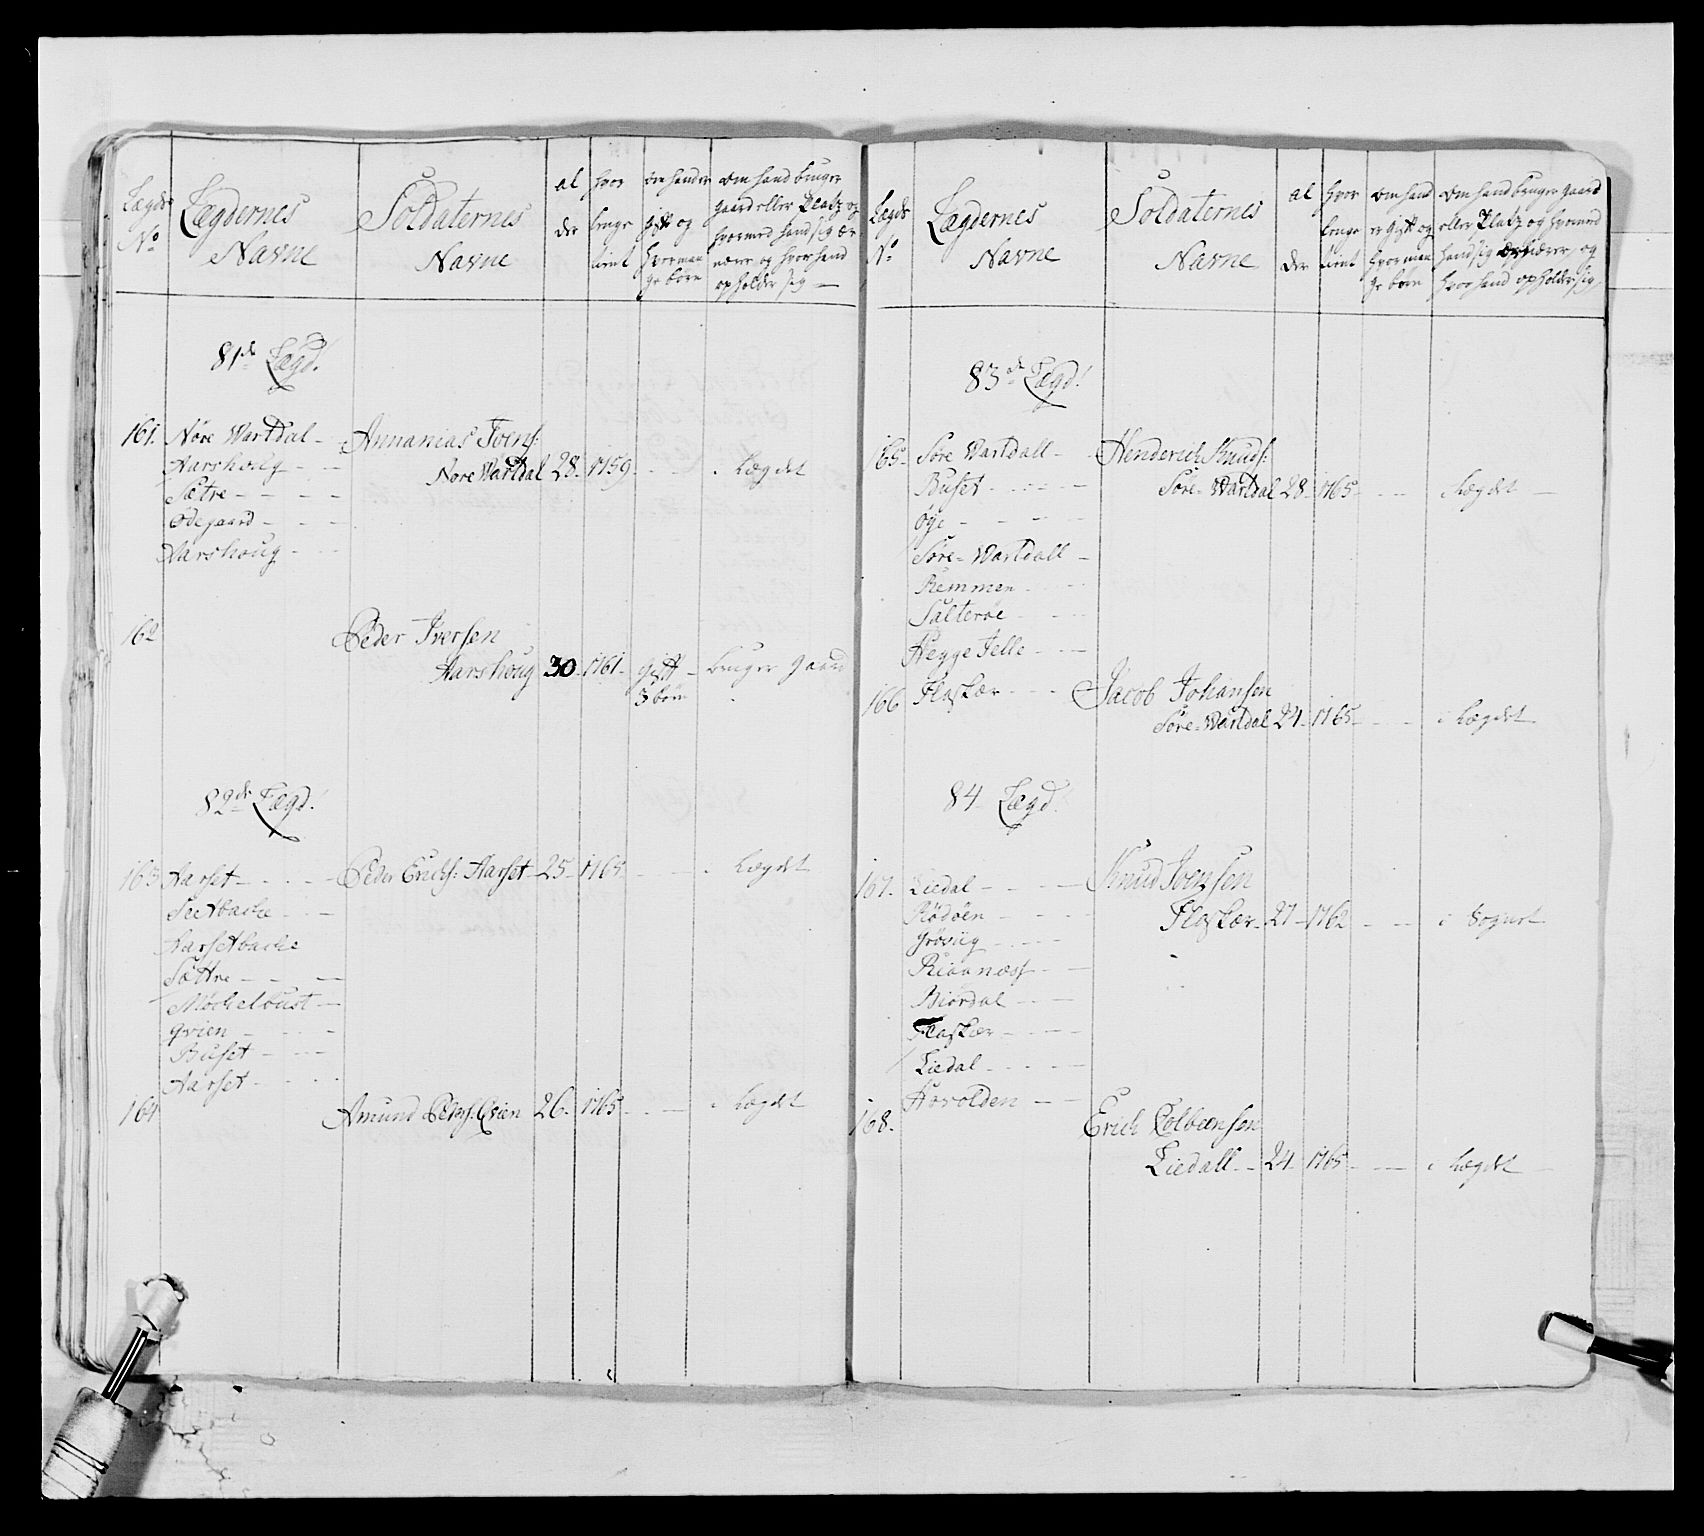 Lægds No
Lægdernes Navne
Soldaternes Navne
al der
hvor lenge tient
om hand er gift og hvor man ge børn
om hand bruger gaard eller Platz og hvormed hand sig ær nærer og hvor hand opholder sig
81de Lægd!
161. Nøre Wartdal Annanias Joens:
Aarshoug Nøre Wartdal 28. 1759. i Lægdet
Sætre
Ødegaard
Aarshoug
162 Peder Iversen
Aarshoug 30 1761 gift bruger gaard
3 børn
82de Lægd!
163 Aarset Peder Erichs: Aarset 25 1765 i Lægdet
Sætbache
Aarsetbache
Sættre
Møchelbust
Qvien
Buset
Aarset
164 Amund Peders: Qvien 26 1765 i Lægdet
Lægds No
Lægdernes Navne
Soldaternes Navne
al der
hvor lenge tient
om hand er gift og hvor man ge børn
om hand bruger gaard eller Platz og hvormed hand sig ærnærer, og hvor hand opholder sig
83de Lægd!
165. Søre Wartdall Henderich Knuds:
Buset Søre Wartdal 28 1765 i Lægdet
Øye
Søre Wartdall
Remmen
Salterøe
Hegge Jelle
166 Flaskær Jacob Johansen
Søre Wartdal 24 1765 i Lægdet
84 Lægd!
167. Liedal Knud Joensen
Rødøen Flaskær 27 1762 i Sognet
Grøviig
Risanæss
Biørdal
Flaskær
Liedal
Havolden
168. Erich Colbensen
Liedall 24 1765 i Lægdet